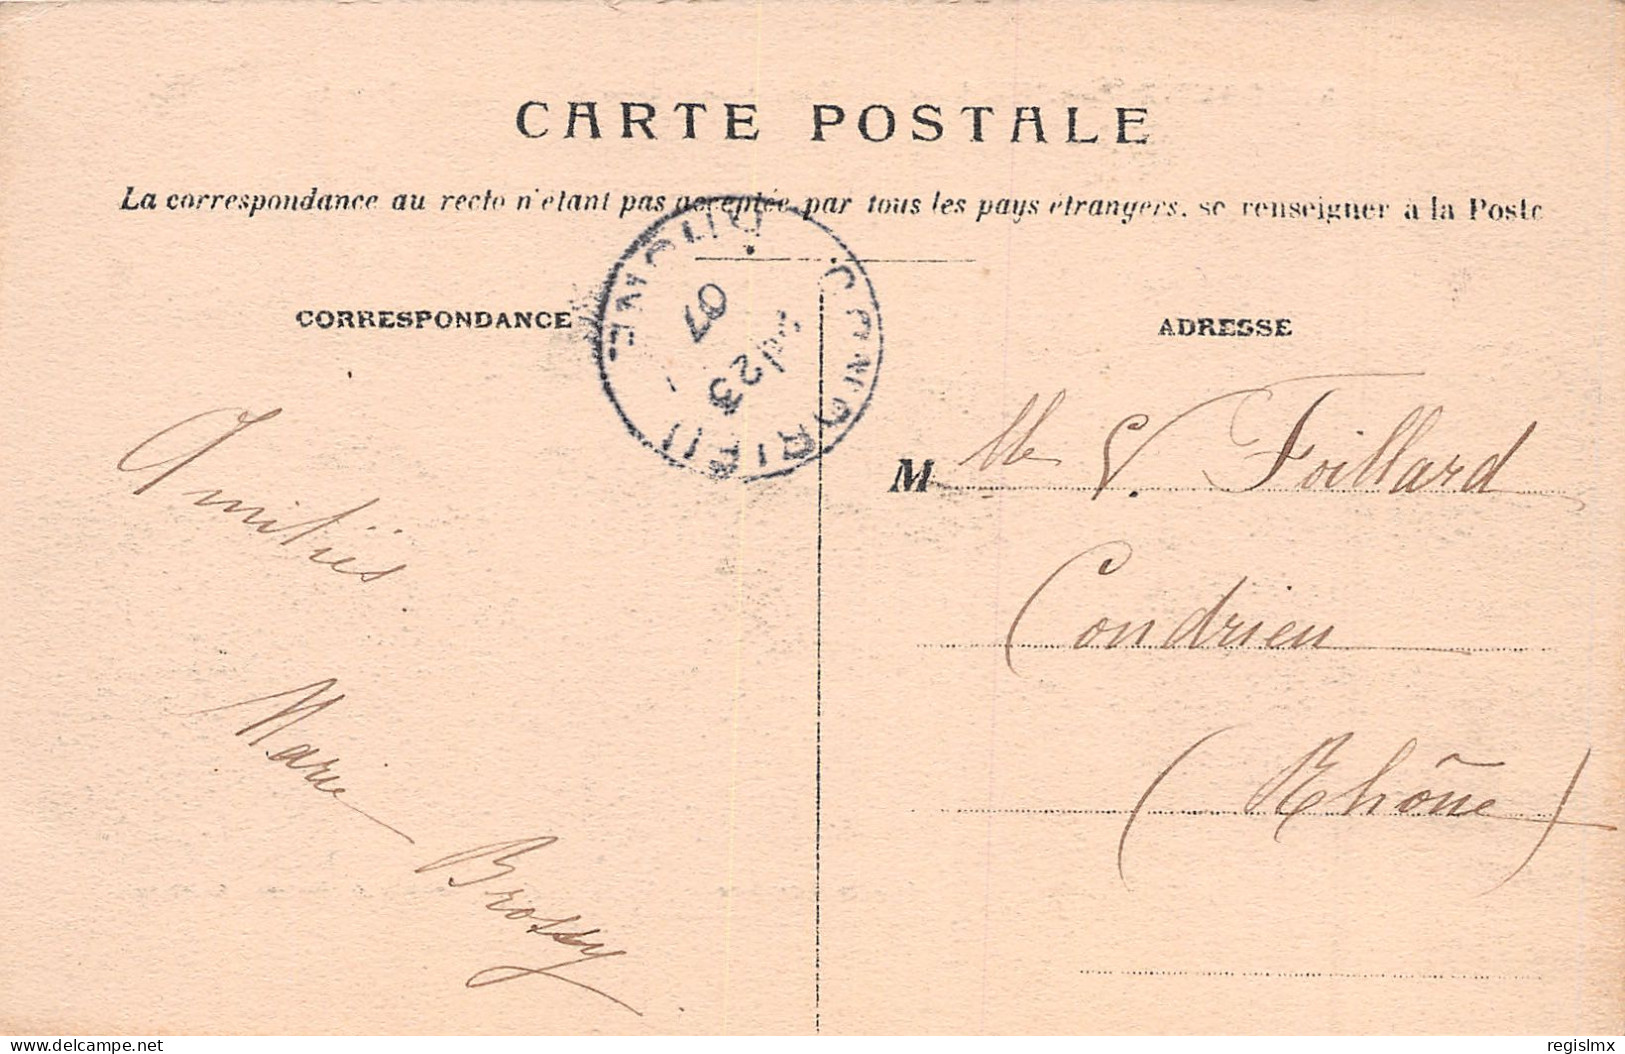 CARTE POSTALE
La correspondance au recto n'étant pas acceptée par tous les pays étrangers, se renseigner à la Poste
CORRESPONDANCE
Amitiés
Marie Brossy
CONDRIEU RHONE
23
07
ADRESSE
M lle V. Foillard
Condrieu
(Rhône)
delcampe.net
regislmx